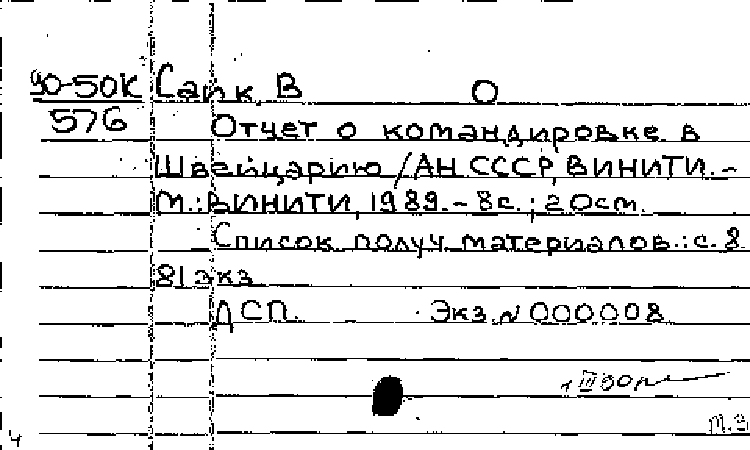 90-50К Сапк, В О
576 Отчет о командировке в
Швейцарию / АН СССР, ВИНИТИ. -
М.: ВИНИТИ, 1989. - 8 с.; 20 см.
Список получ. материалов.: с. 8
81 экз
ДСП. Экз. № 000008
М.Э
4